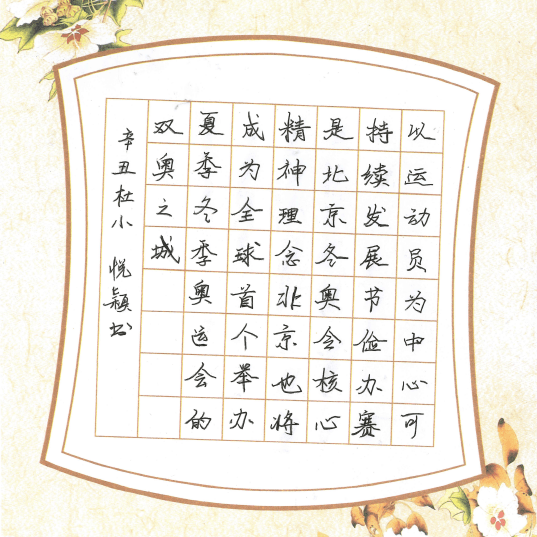 以运动员为中心可
持续发展节俭办赛
是北京冬奥会核心
精神理念北京也将
成为全球首个举办
夏季冬季奥运会的
双奥之城
辛丑杜小 悦颖书